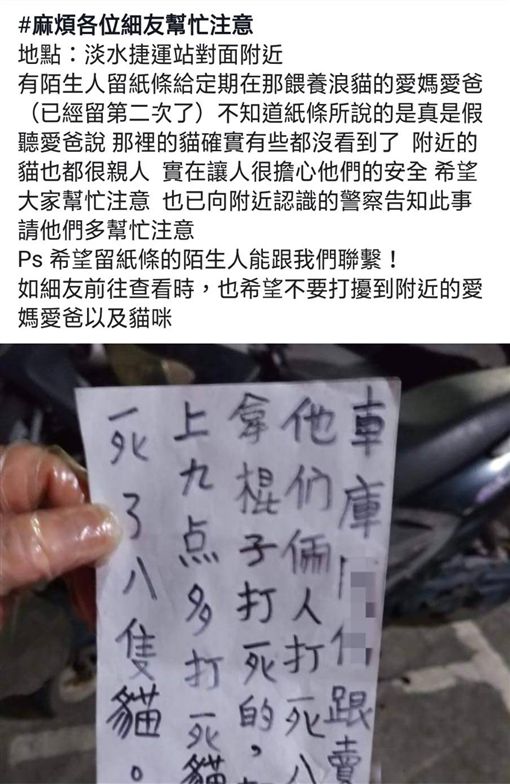 #麻煩各位細友幫忙注意
地點：淡水捷運站對面附近
有陌生人留紙條給定期在那餵養浪貓的愛媽愛爸
（已經留第二次了）不知道紙條所說的是真是假
聽愛爸說 那裡的貓確實有些都沒看到了 附近的
貓也都很親人 實在讓人很擔心他們的安全 希望
大家幫忙注意 也已向附近認識的警察告知此事
請他們多幫忙注意
Ps 希望留紙條的陌生人能跟我們聯繫！
如細友前往查看時，也希望不要打擾到附近的愛
媽愛爸以及貓咪
車庫跟賣
他們倆人打死八
拿棍子打死的，
上九点多打死貓
死了八隻貓。